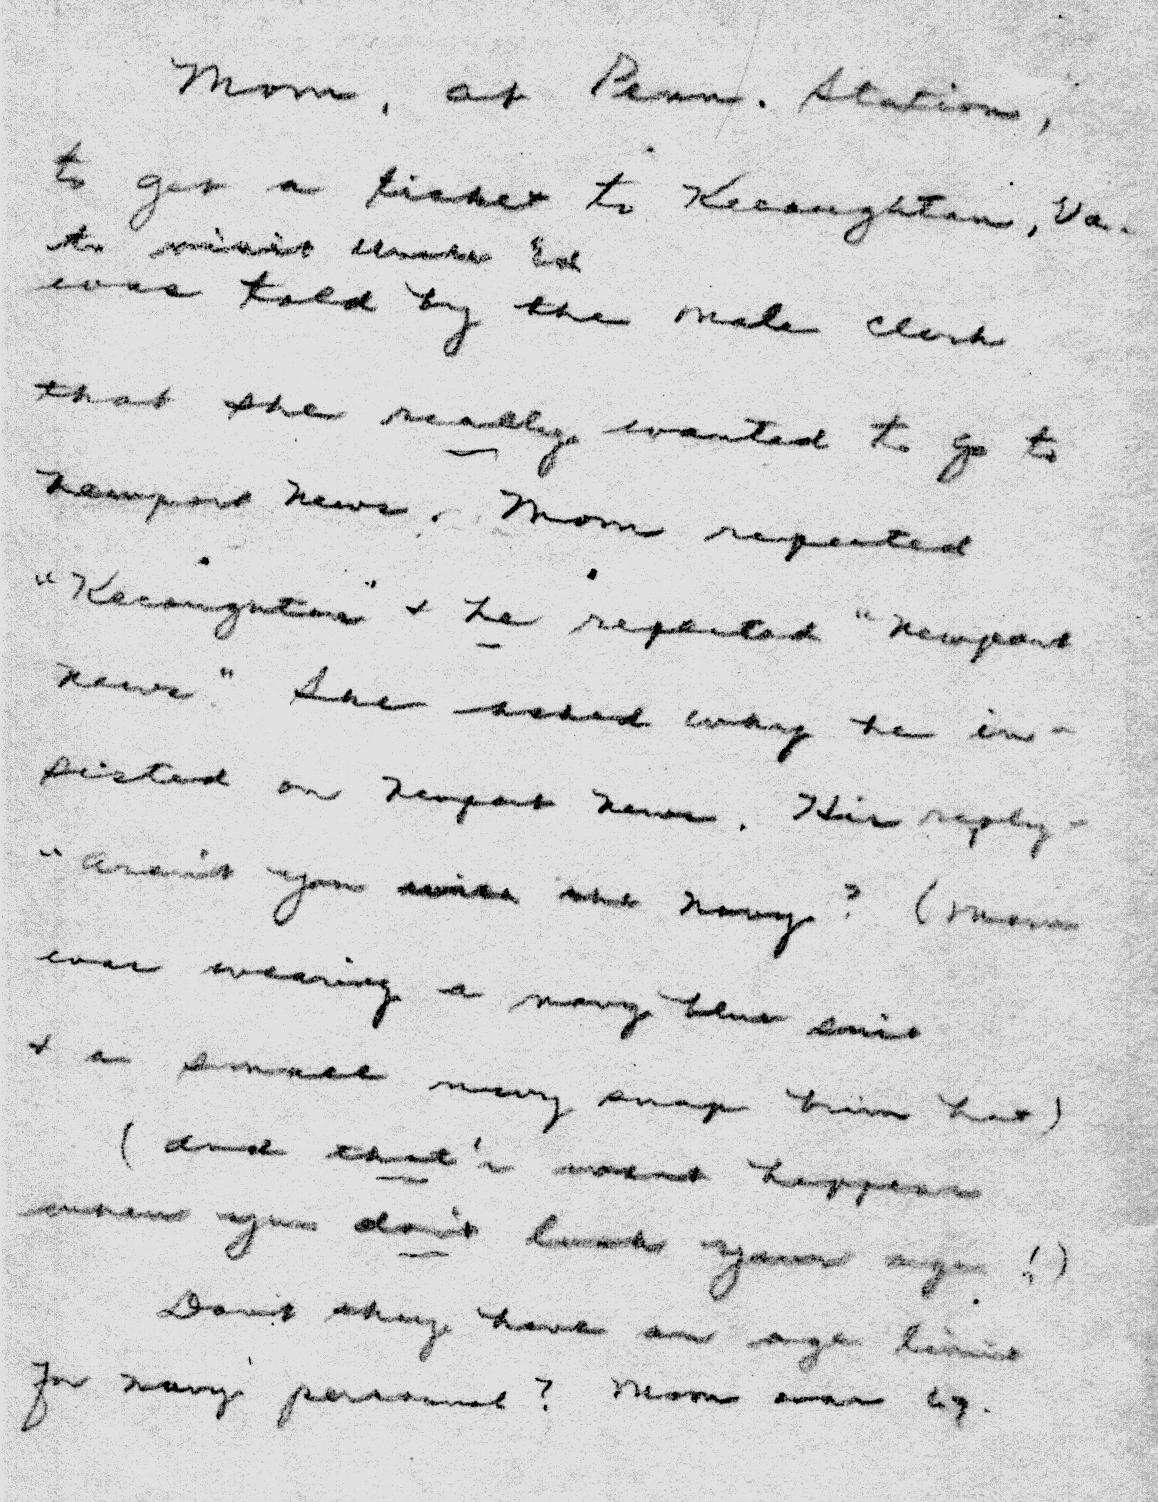 Mom, at Penn. Station,
to get a ticket to Kecoughtan, Va.
to visit Uncle Ed
was told by the male clerk
that she really wanted to go to
Newport News. Mom repeated
"Kecoughtan" + he repeated "Newport
News" She asked why he in-
sisted on Newport News. His reply-
"Aren't you with the Navy? (Mom
was wearing a navy blue suit
+ a small navy snap brim hat)
(and that's what happens
when you don't look your age!)
Don't they have an age limit
for navy personnel? Mom was 69.